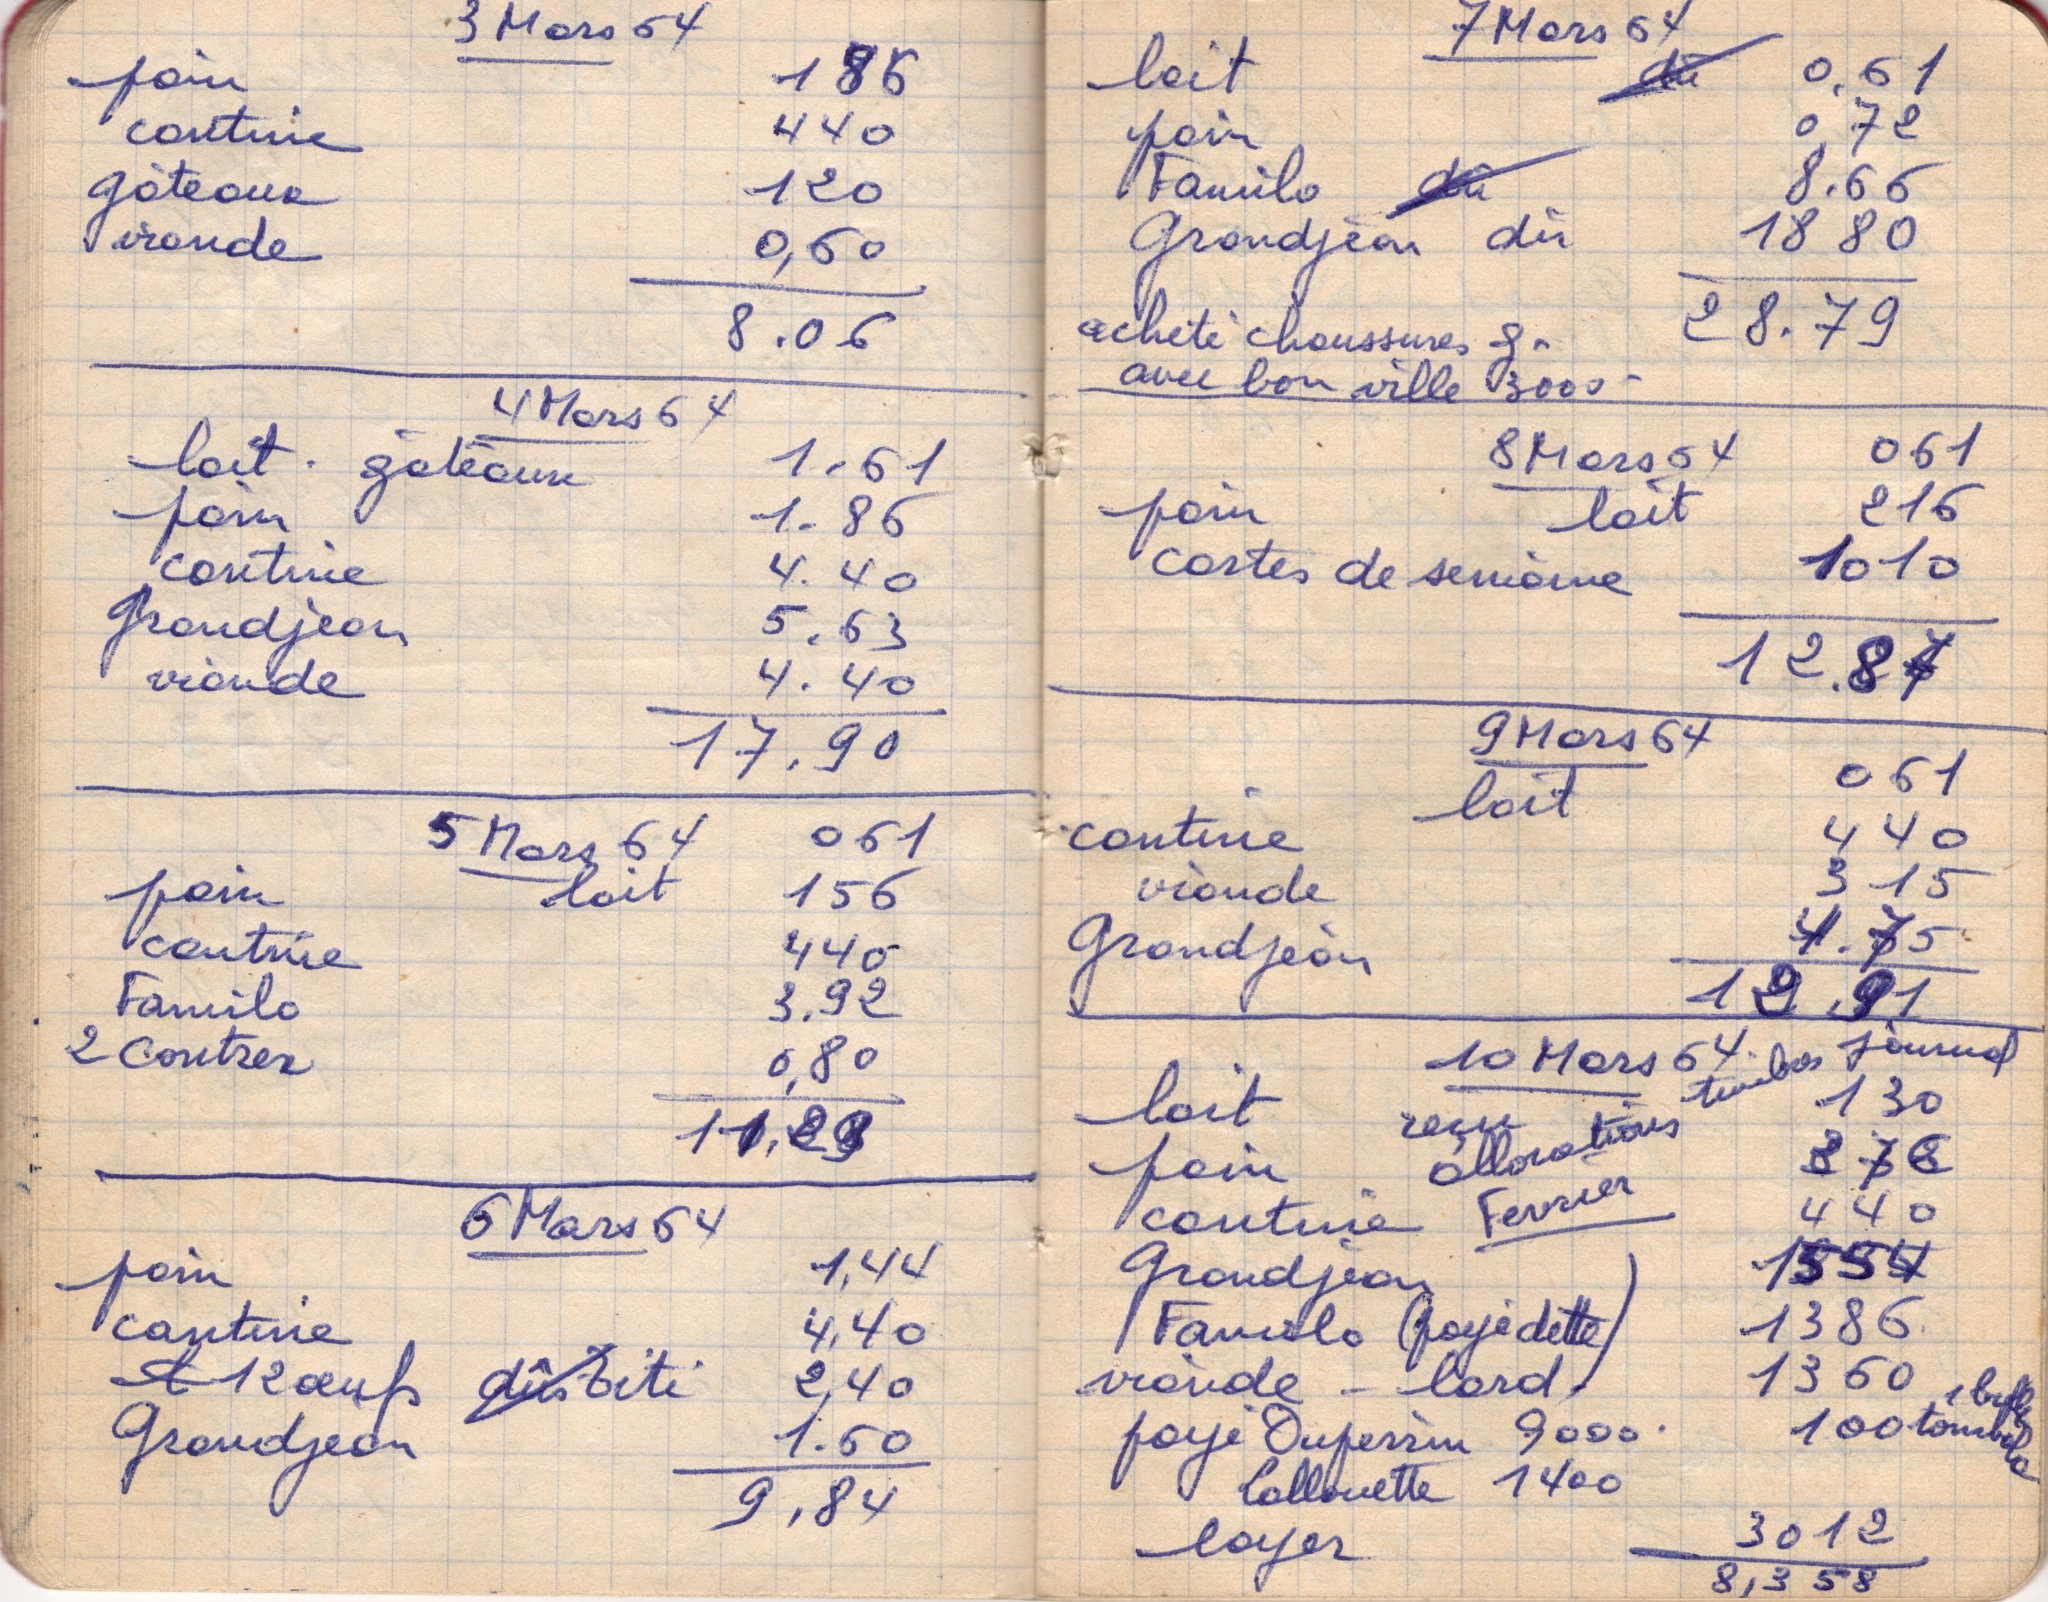 3 Mars 64
pain 186
cantine 440
gâteaux 120
viande 0,60
8.06
4 Mars 64
lait. gâteaux 1.61
pain 1.86
cantine 4.40
Grandjean 5.63
viande 4.40
17.90
5 Mars 64 061
pain lait 156
cantine 440
Familo 3.92
2 Contrex 0,80
11,29
6 Mars 64
pain 1,44
cantine 4,40
12 œufs dûs 2,40
Grandjean 1.60
9,84
7 Mars 64
lait dû 0.61
pain 0,72
Familo dû 8.66
Grandjean dû 18 80
28.79
acheté chaussures g.
avec bon ville 3000-
8 Mars 64 061
pain lait 216
cartes de semaine 1010
12.87
9 Mars 64
lait 061
cantine 440
viande 315
Grandjean 4.75
12.91
10 Mars 64. timbres journal
lait reçu 130
pain allocations 276
cantine Fevrier 440
Grandjean 1554
Familo (payé dette) 1386
viande - lard 1360
payé Duperrin 9000. 100 tombola
Lallouette 1400
loyer 3012
8,358